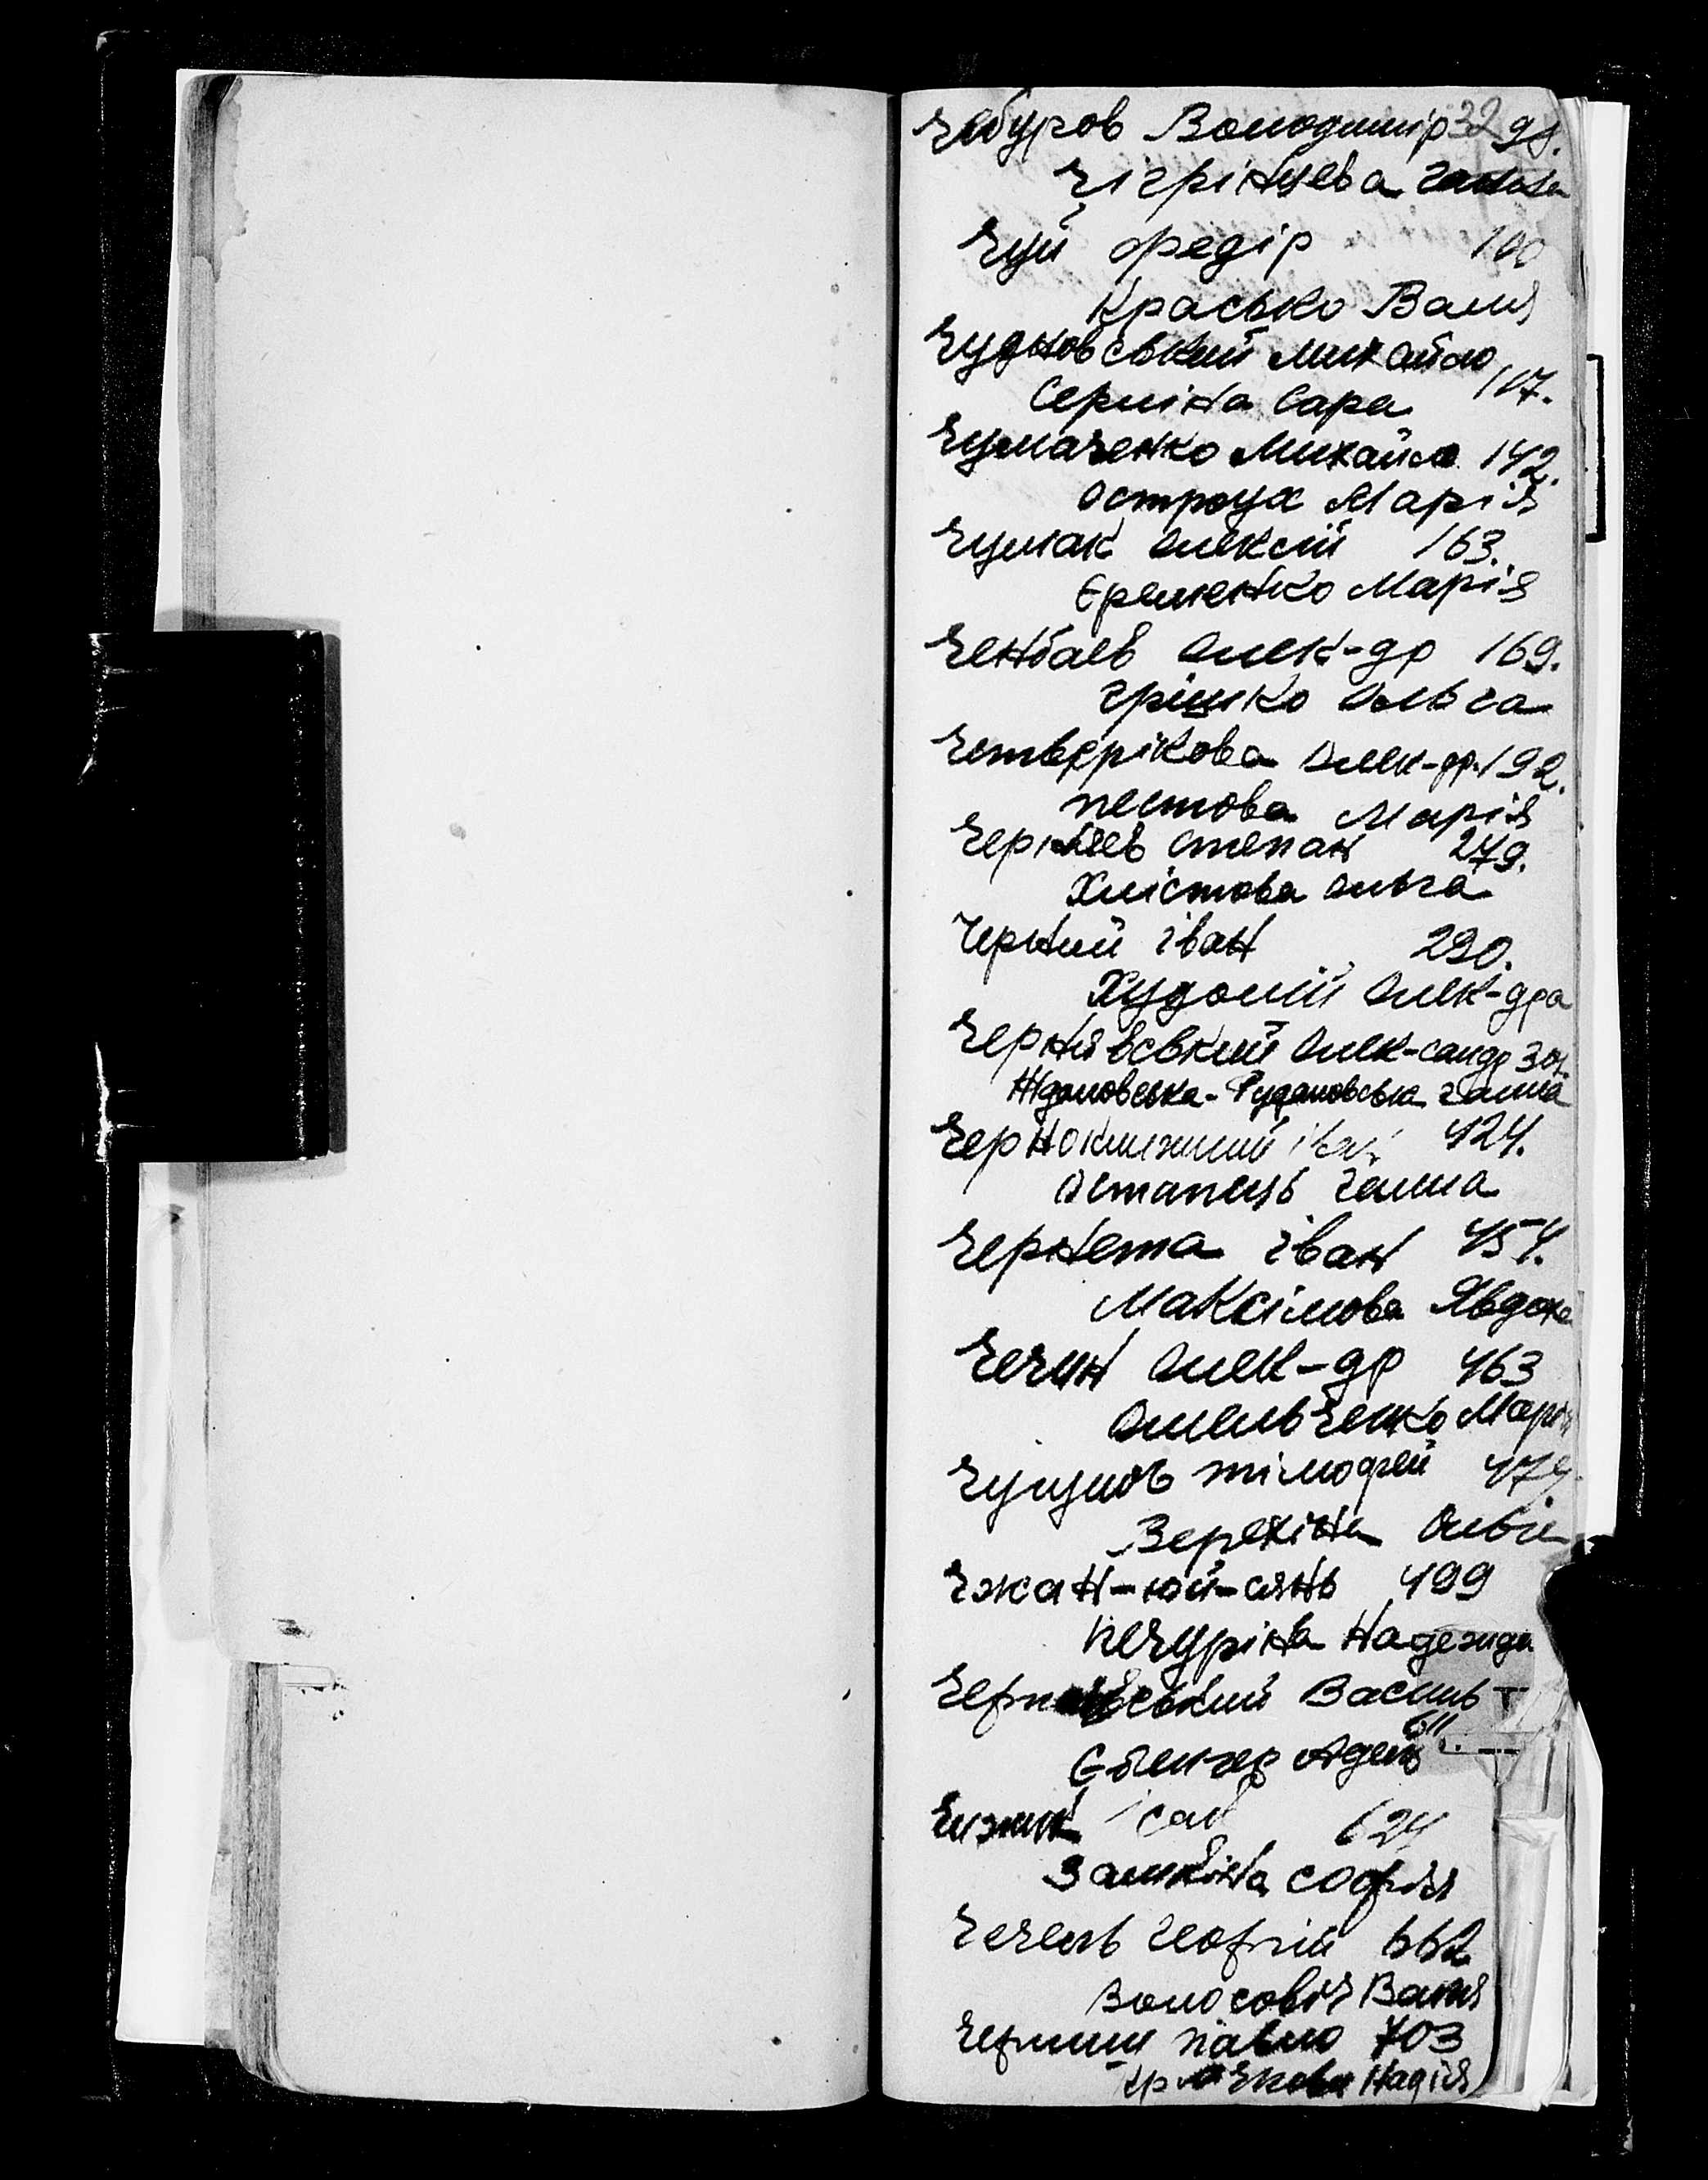 Чабуров Володимір 32 98.
Чігрінцева Ганна
Чуй Федір 100
Красько Валя
Чудновський Михайло
Серніна Сара 117.
Чумаченко Михайло 142.
Остроух Марія
Чумак Олексій 163.
Єременко Марія
Ченбаев Олек-др 169.
Грішко Ольга
Четверікова Олек-др. 192.
Пестова Марія
Степан 279.
Хлістова Ольга
Чорний Іван 290.
Худолій Олек-дра
Чернявський Олек-сандр
Ждановська-Рудановська Ганна
Чернокнижний Іван 424.
Остапець Ганна
Чернета Іван 454.
Максімова Явдоха
Чечин Олек-др 463
Омельченко Марія
Чугунов Тімофей
Ольга
Чжан-юй-сянь 499
Печуріна Надежда
Василь
611.
Чижик 624
Замкіна Софія
Чечель 662
Волосовіч Валя
Павло 703
Надія